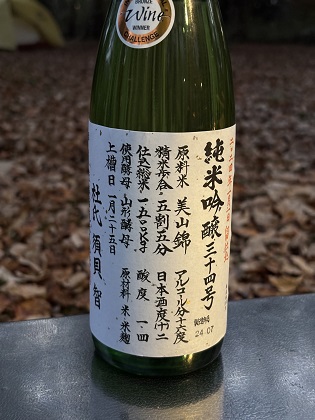 BRONZE
Wine
WINNER
CHALLENGE
純米吟醸三十四号
原料米 美山錦
精米歩合 五割五分
仕込総米 一五〇〇kg
使用酵母 山形酵母
上槽日 一月二十五日
アルコール分十六度
日本酒度 十二
酸度 一・四
原材料 米 米麹
製造年月
24.07
杜氏 須貝 智